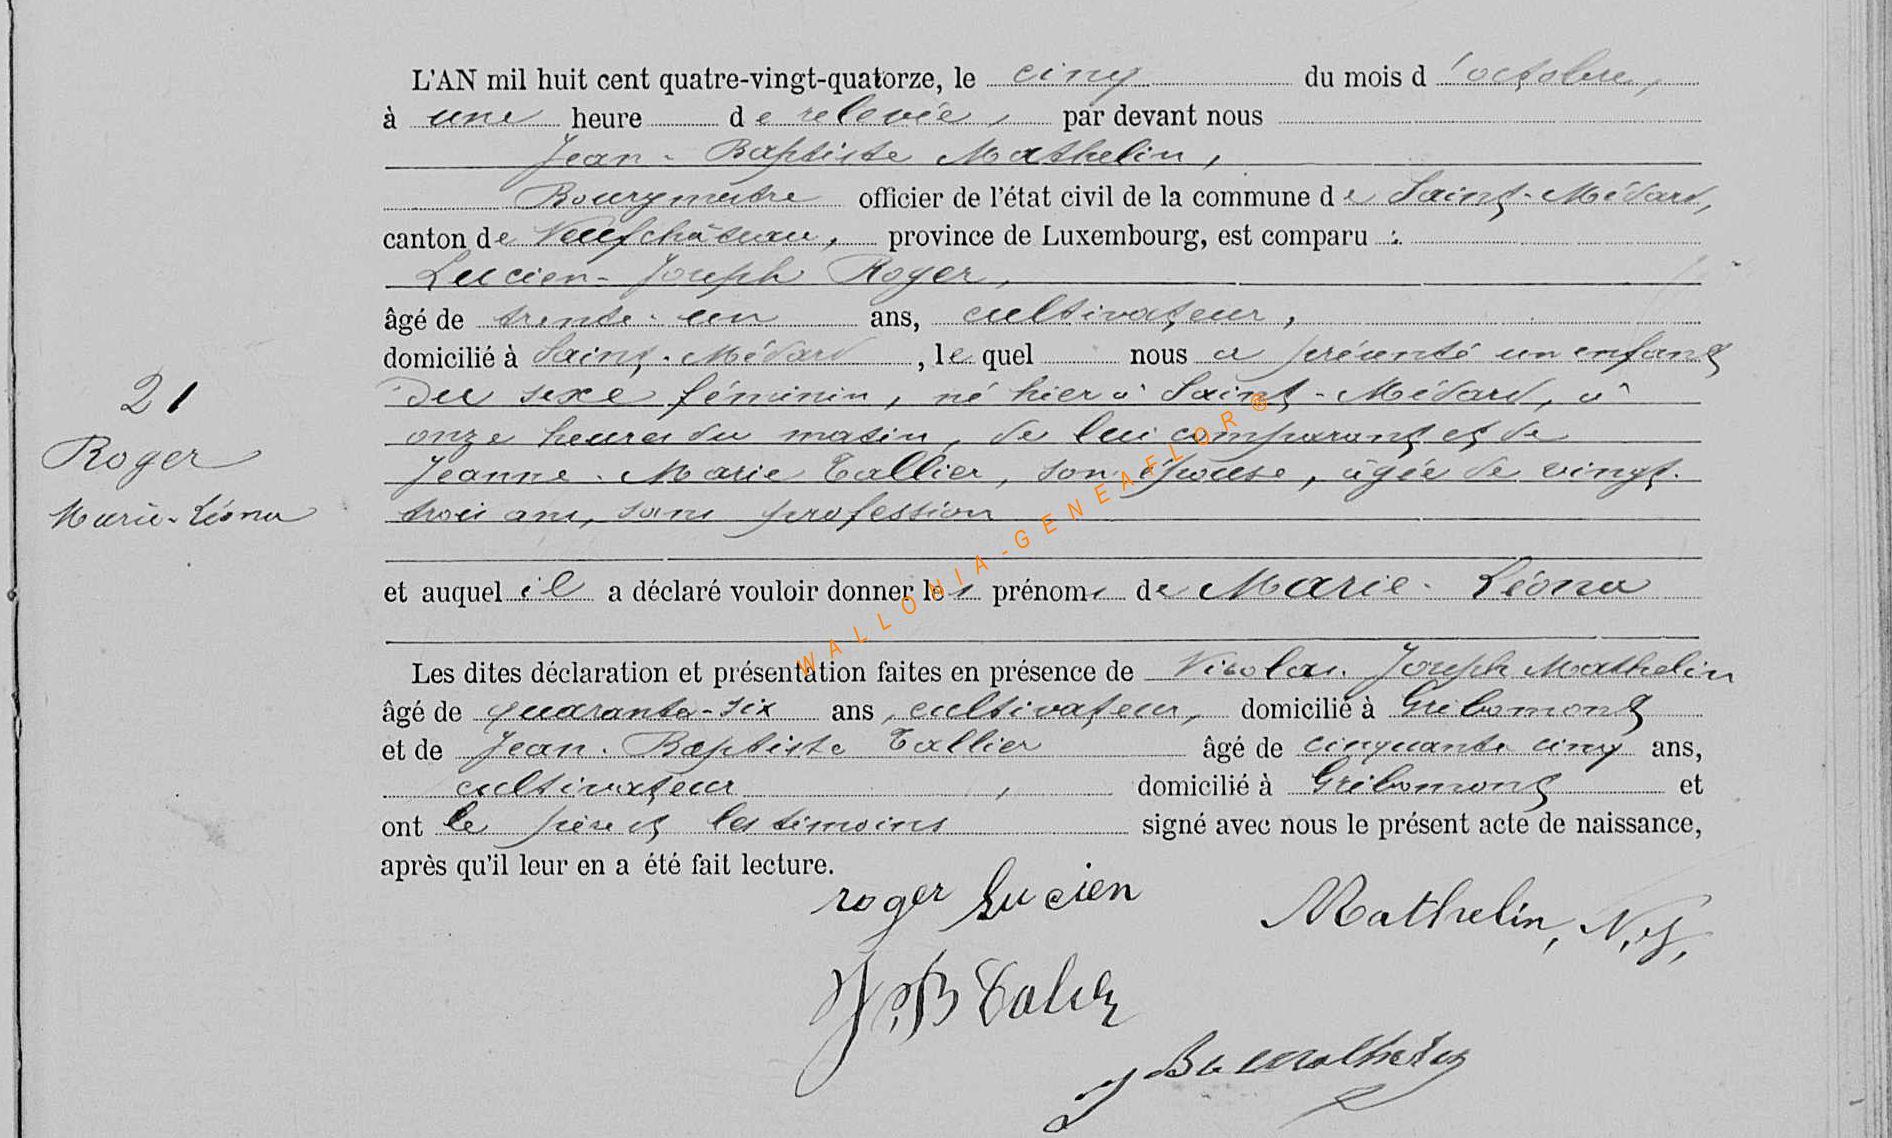 L'AN mil huit cent quatre-vingt-quatorze, le cinq du mois d'octobre,
à une heure de relevée, par devant nous
Jean-Baptiste Mathelin,
Bourgmestre officier de l'état civil de la commune de Saint-Médard,
canton de Neufchâteau, province de Luxembourg, est comparu :
Lucien-Joseph Roger,
âgé de trente-un ans, cultivateur,
domicilié à Saint-Médard, lequel nous a présenté un enfant
du sexe féminin, né hier à Saint-Médard, à
onze heures du matin, de lui comparant et de
Jeanne-Marie Tallier, son épouse, âgée de vingt-
trois ans, sans profession
et auquel il a déclaré vouloir donner les prénoms de Marie-Léona
Les dites déclaration et présentation faites en présence de Nicolas-Joseph Mathelin
âgé de quarante-six ans, cultivateur, domicilié à Gribomont
et de Jean-Baptiste Tallier âgé de cinquante cinq ans,
cultivateur, domicilié à Gribomont et
ont le père et les témoins signé avec nous le présent acte de naissance,
après qu'il leur en a été fait lecture.
21
Roger
Marie-Léona
roger Lucien
Mathelin, N. J.
J. B Talier
J Bte Mathelin
WALLONIA-GENEAFLOR®